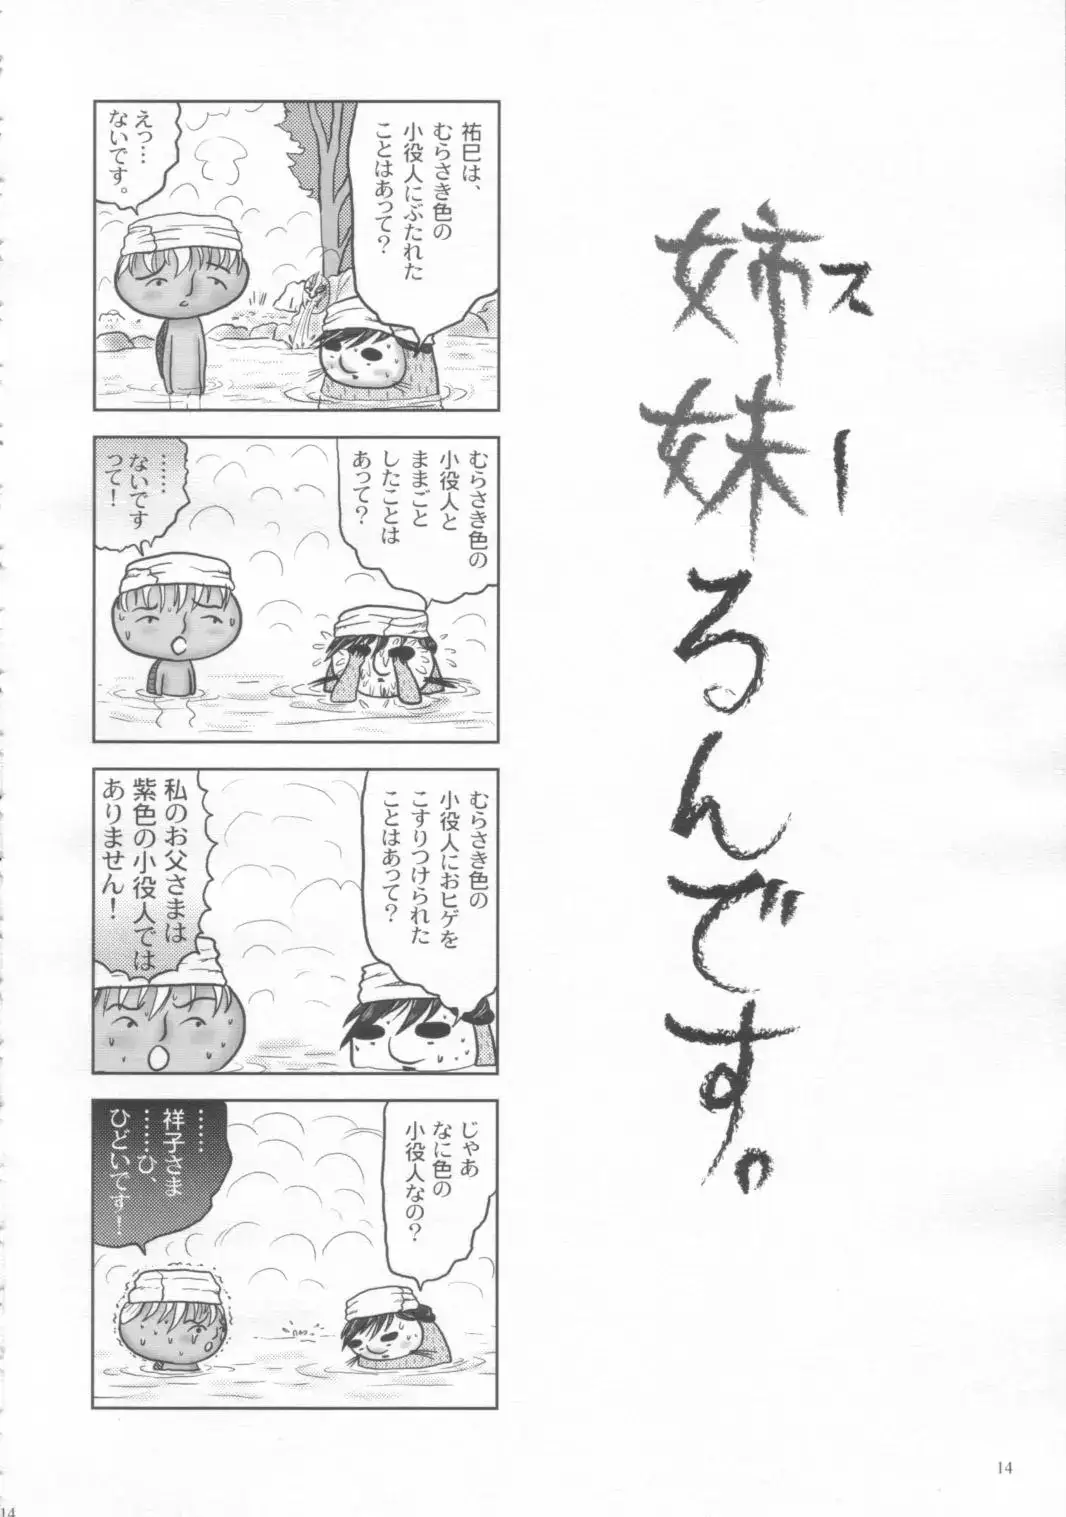 姉妹るんです。
スール
祐巳は、
むらさき色の
小役人にぶたれた
ことはあって?
えっ…
ないです。
むらさき色の
小役人と
ままごと
したことは
あって?
……
ないです
って!
むらさき色の
小役人におヒゲを
こすりつけられた
ことはあって?
私のお父さまは
紫色の小役人では
ありません!
じゃあ
なに色の
小役人なの?
……
祥子さま
……ひ、
ひどいです!
14
14